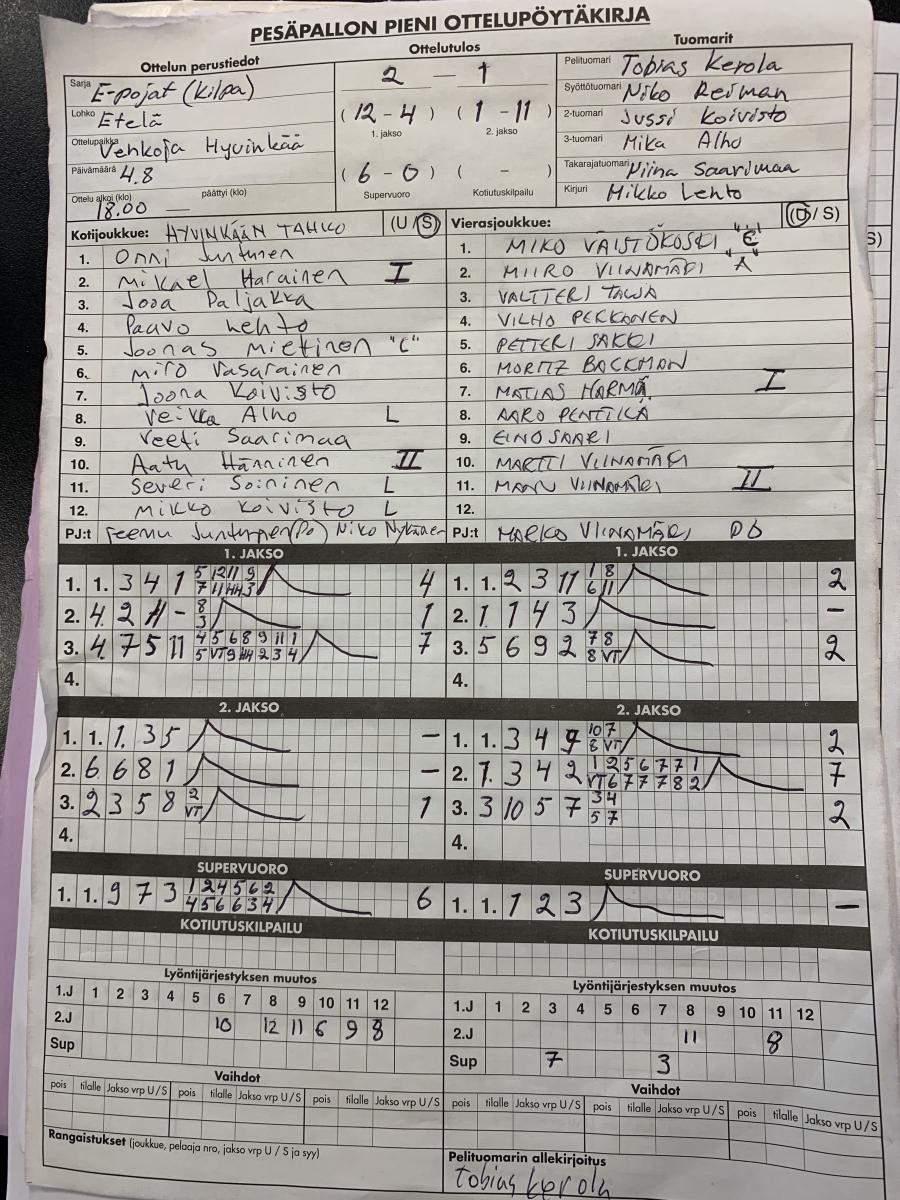 PESÄPALLON PIENI OTTELUPÖYTÄKIRJA
Ottelun perustiedot
Sarja E-pojat (kilpa)
Lohko Etelä
Ottelupaikka Vehkoja Hyvinkää
Päivämäärä 4.8
Ottelu alkoi (klo) päättyi (klo)
18.00 —
Ottelutulos
2 — 1
(12 - 4) (1 - 11)
1. jakso 2. jakso
(6 - 0) ( - )
Supervuoro Kotiutuskilpailu
Tuomarit
Pelituomari Tobias Kerola
Syöttötuomari Niko Reiman
2-tuomari Jussi Koivisto
3-tuomari Mika Alho
Takarajatuomari Niina Saarimaa
Kirjuri Mikko Lehto
Kotijoukkue: HYVINKÄÄN TAHKO (U / S)
1. Onni Juntunen
2. Mikael Harainen I
3. Jooa Paljakka
4. Paavo Lehto
5. Joonas Mietinen "C"
6. Miro Vasarainen
7. Joona Koivisto
8. Veikka Alho L
9. Veeti Saarimaa
10. Aatu Hänninen II
11. Severi Soininen L
12. Mikko Koivisto L
PJ:t Teemu Juntunen (PÖ) Niko Nykänen
Vierasjoukkue: (U / S)
1. MIKO VÄISTÖKOSKI "C"
2. MIIRO VIINAMÄKI "A"
3. VALTTERI TALJA
4. VILHO PEKKONEN
5. PETTERI SAKKI
6. MORITZ BACKMAN
7. MATIAS HÄRMÄ I
8. AARO PENTTILÄ
9. EINO SAARI
10. MARTTI VIINAMÄKI
11. MANU VIINAMÄKI II
12.
PJ:t MARKO VIINAMÄKI
1. JAKSO
1. 1. 3 4 1 5 12 11 9 4
7 11 HH 3
2. 4. 2 11 - 8 1
3
3. 4. 7 5 11 4 5 6 8 9 11 1 7
5 VT 9 HH 2 3 4
4.
1. JAKSO
1. 1. 2 3 11 1 8 2
6 11
2. 1. 1 4 3 —
3. 5 6 9 2 7 8 2
8 VT
4.
2. JAKSO
1. 1. 1. 3 5 —
2. 6 6 8 1 —
3. 2 3 5 8 2 1
VT
4.
2. JAKSO
1. 1. 3 4 9 10 7 2
8 VT
2. 1. 3 4 2 1 2 5 6 7 7 1 7
VT 6 7 7 7 8 2
3. 3 10 5 7 3 4 2
5 7
4.
SUPERVUORO
1. 1. 9 7 3 1 2 4 5 6 2 6
4 5 6 6 3 4
SUPERVUORO
1. 1. 1 2 3 —
KOTIUTUSKILPAILU
KOTIUTUSKILPAILU
Lyöntijärjestyksen muutos
1.J 1 2 3 4 5 6 7 8 9 10 11 12
2.J 10 12 11 6 9 8
Sup
Lyöntijärjestyksen muutos
1.J 1 2 3 4 5 6 7 8 9 10 11 12
2.J 11 8
Sup 7 3
Vaihdot
pois tilalle Jakso vrp U / S pois tilalle Jakso vrp U / S pois tilalle Jakso vrp U / S
Vaihdot
pois tilalle Jakso vrp U / S pois tilalle Jakso vrp U / S pois tilalle Jakso vrp U / S
Rangaistukset (joukkue, pelaaja nro, jakso vrp U / S ja syy)
Pelituomarin allekirjoitus
Tobias Kerola